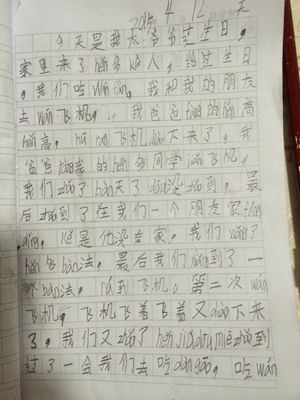 2015 4 12 天
今天是我太爷爷过生日,
家里来了hěn多人。给过生日
,我们吃wán fàn,我和我的朋友
去wán飞机。我爸爸fàng的hěn高
hěn高,rán 飞机diào下来了,我
爸爸 我的hěn多同学zhǎo飞机,
我们zhǎo了bàn天了dōu没zhǎo到,最
后zhǎo到了在我们一个朋友家
,kě是他没在家,我们xiǎng了
hěn多bàn法,最后我们xiǎng到了一
个bàn法,ná到飞机。第二次wán
飞机,飞机飞着飞着又diào下来
了,我们又zhǎo了hěn jiǔ dōu méi zhǎo到
过了一会我们去吃dàn gāo,吃wán